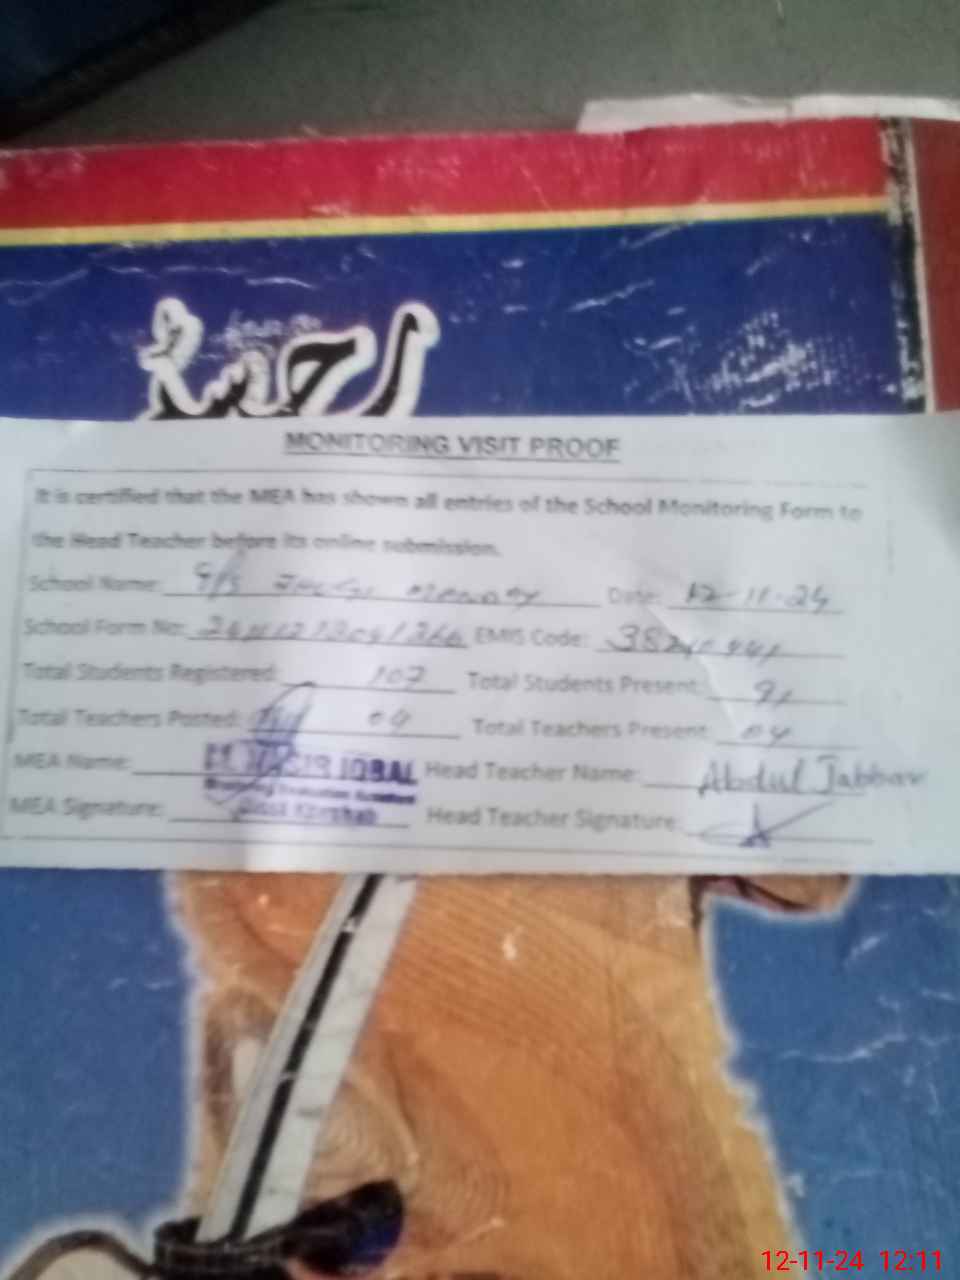 MONITORING VISIT PROOF
It is certified that the MEA has shown all entries of the School Monitoring Form to
the Head Teacher before its online submission.
School Name: Date: 12-11-24
School Form No: EMIS Code:
Total Students Registered: 107 Total Students Present: 91
Total Teachers Posted: 04 Total Teachers Present: 04
MEA Name: IQBAL Head Teacher Name: Abdul Jabbar
MEA Signature: Head Teacher Signature:
12-11-24 12:11